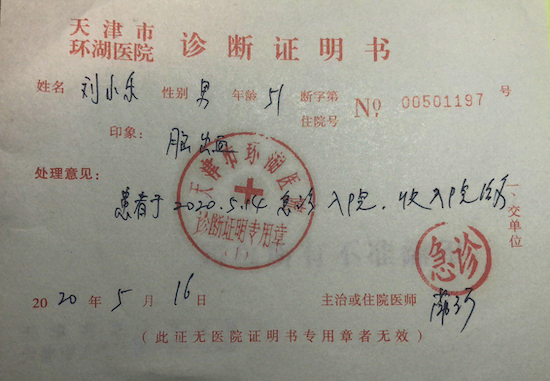 天津市
环湖医院 诊断证明书
姓名 刘小乐 性别 男 年龄 51 断字第
住院号 No 00501197 号
印象: 脑出血
处理意见:
患者于2020.5.14急诊入院,收入院治疗
一、交单位
天津市环湖医院
诊断证明专用章
(1)
急诊
2020年5月16日 主治或住院医师
(此证无医院证明书专用章者无效)